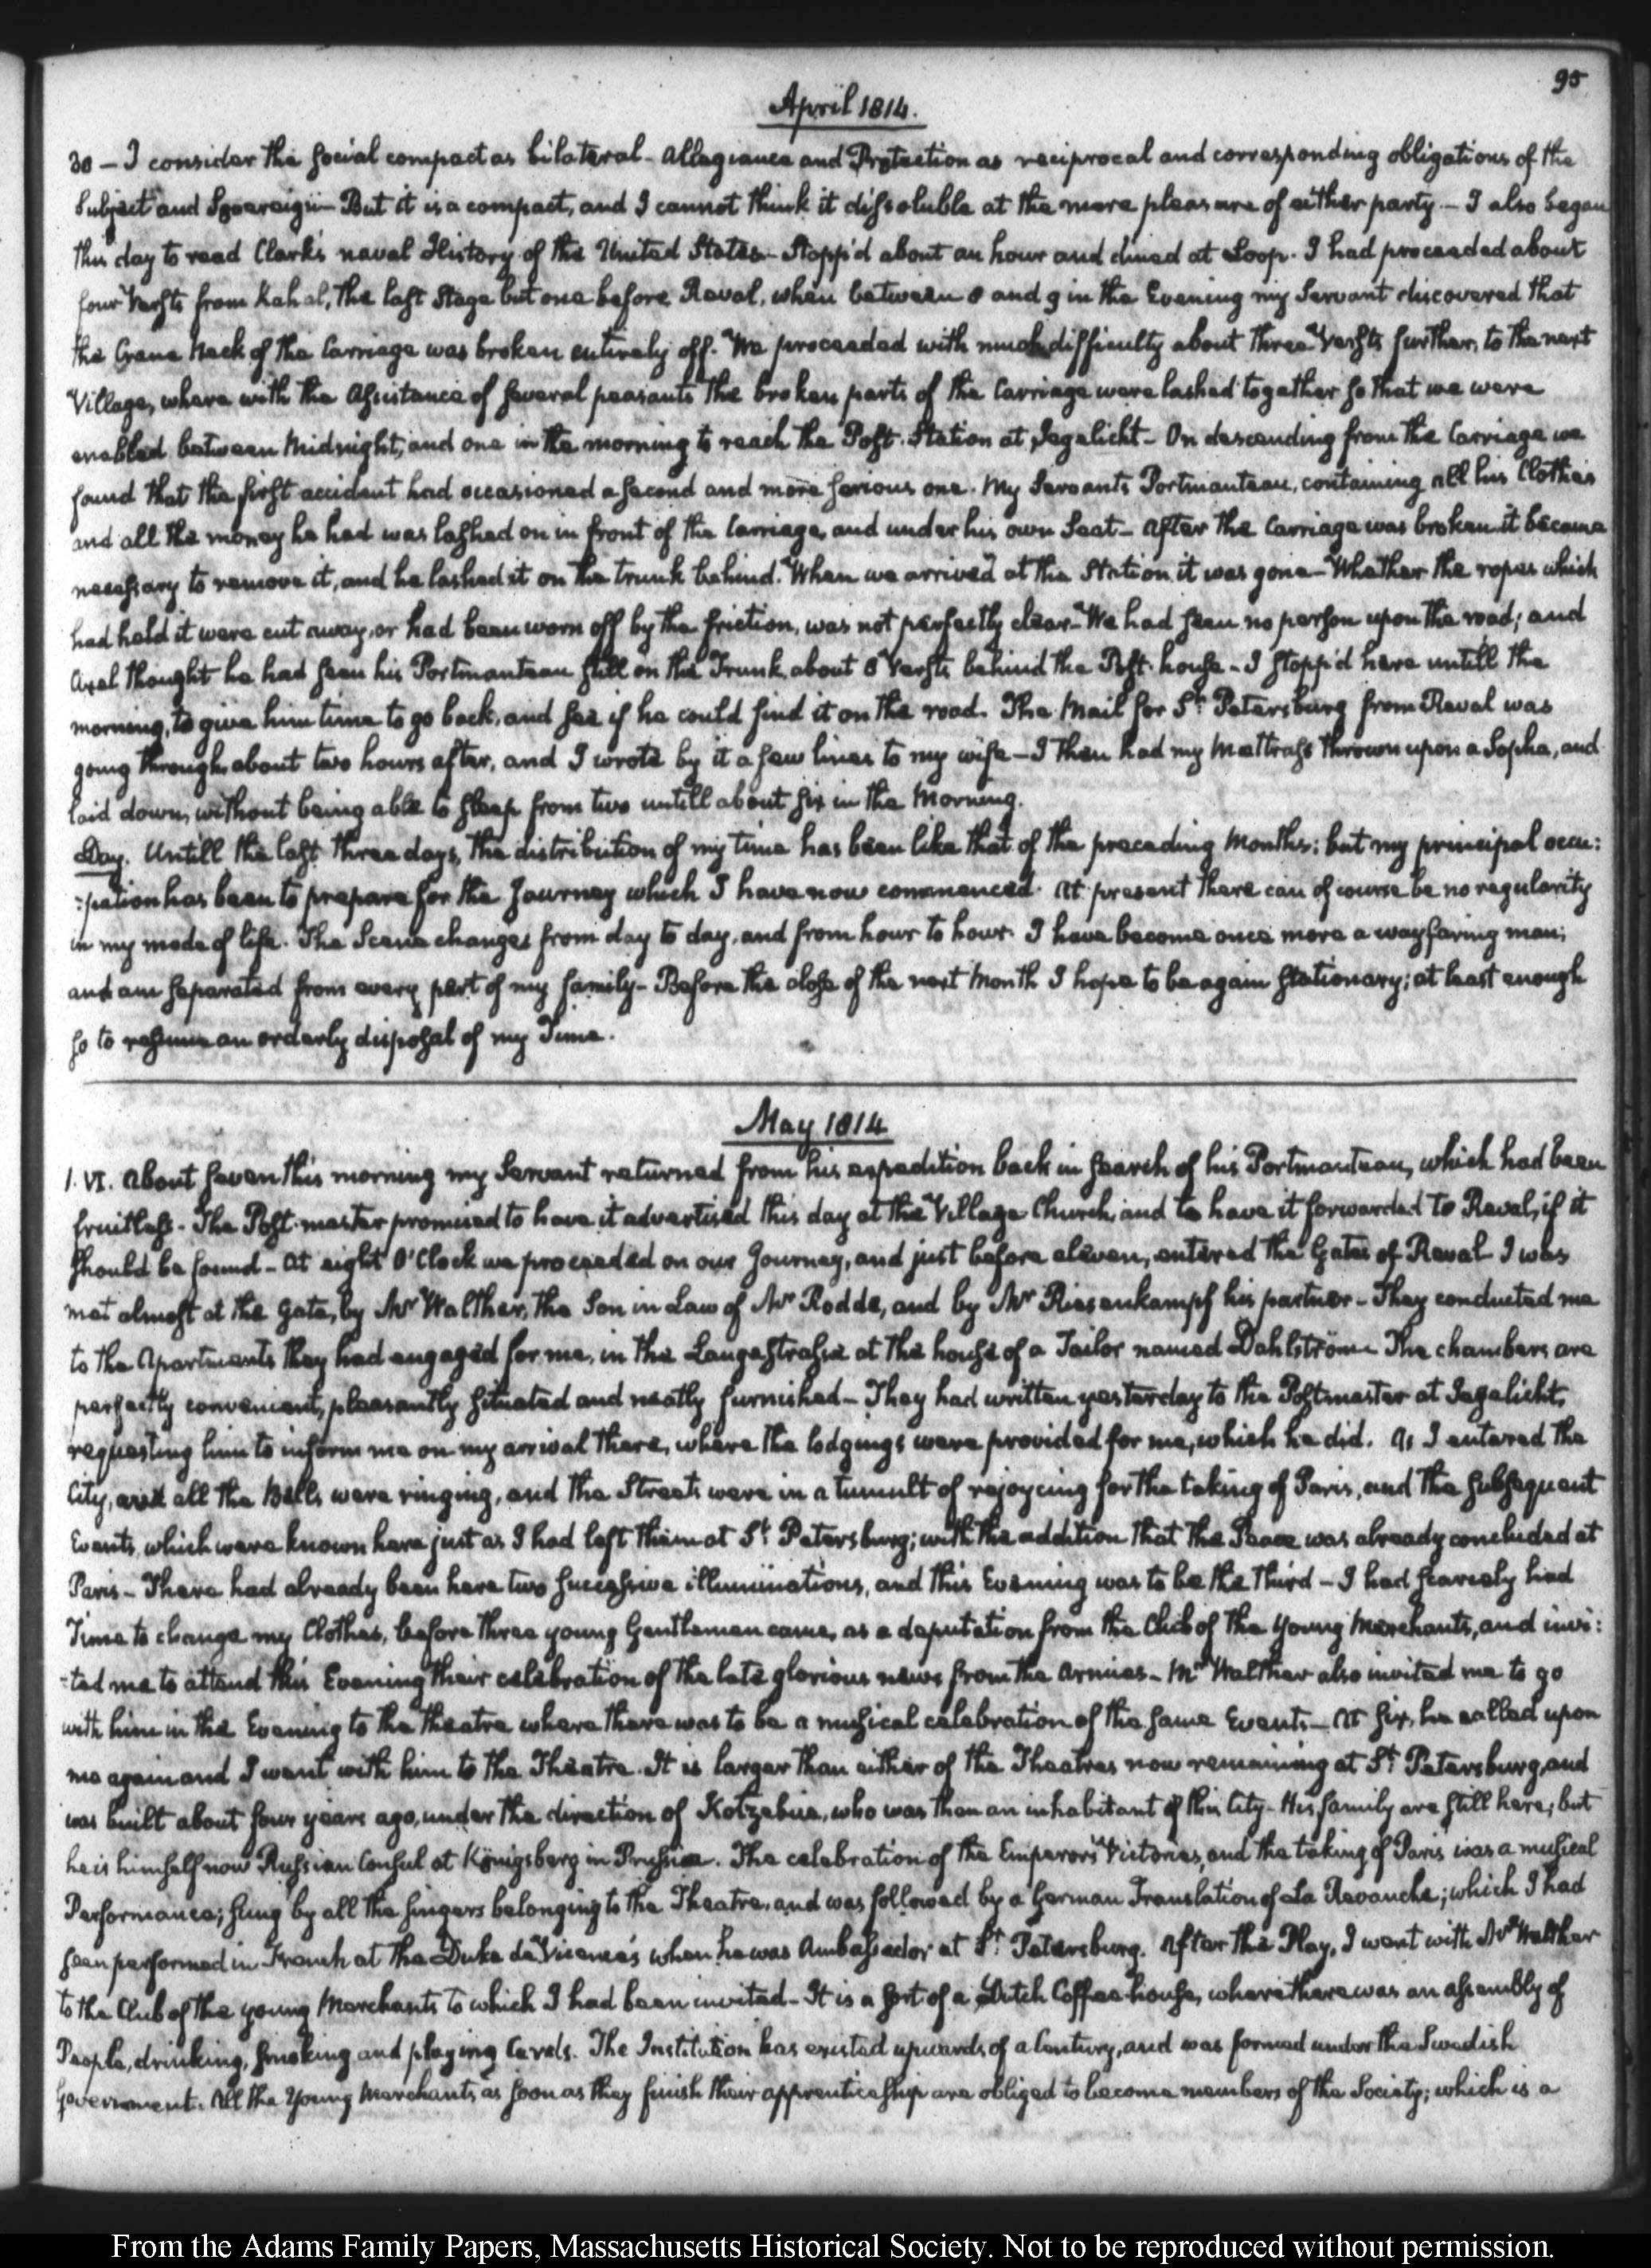 95
April 1814.
30 — I consider the social compact as bilateral - Allegiance and Protection as reciprocal and corresponding obligations of the
Subject and Sovereign — But it is a compact, and I cannot think it dissoluble at the mere pleasure of either party. — I also began
this day to read Clark's naval History of the United States — Stopp'd about an hour and dined at Loop. I had proceeded about
four Versts from Kahal, the last Stage but one before Reval, when between 8 and 9 in the Evening my Servant discovered that
the Crane Neck of the Carriage was broken entirely off. We proceeded with much difficulty about three Versts further, to the next
Village, where with the Assistance of several peasants the broken parts of the Carriage were lashed together so that we were
enabled between Midnight, and one in the morning to reach the Post-Station at Jegelicht - On descending from the Carriage we
found that the first accident had occasioned a second and more serious one. My Servants Portmanteau, containing all his Clothes
and all the money he had was lashed on in front of the Carriage, and under his own Seat - After the Carriage was broken it became
necessary to remove it, and he lashed it on the trunk behind. When we arrived at the Station it was gone - Whether the ropes which
had held it were cut away, or had been worn off by the friction, was not perfectly clear - We had seen no person upon the road; and
Axel thought he had seen his Portmanteau still on the Trunk, about 8 Versts behind the Post-house - I stopp'd here untill the
morning, to give him time to go back, and see if he could find it on the road. The Mail for St. Petersburg from Reval was
going through about two hours after, and I wrote by it a few lines to my wife - I then had my Mattrass thrown upon a Sopha, and
laid down, without being able to sleep from two untill about six in the Morning.
Day. Untill the last three days, the distribution of my time has been like that of the preceding Months: but my principal occu:
:pation has been to prepare for the Journey which I have now commenced. At present there can of course be no regularity
in my mode of life. The Scene changes from day to day, and from hour to hour. I have become once more a wayfaring man;
and am separated from every part of my family - Before the close of the next Month I hope to be again stationary; at least enough
so to resume an orderly disposal of my Time.
May 1814
1. VI. About seven this morning my Servant returned from his expedition back in search of his Portmanteau, which had been
fruitless - The Post-master promised to have it advertised this day at the Village Church, and to have it forwarded to Reval, if it
should be found - At eight O'Clock we proceeded on our Journey, and just before eleven, entered the Gates of Reval I was
met almost at the Gate, by Mr Walther, the Son in Law of Mr Rodde, and by Mr Riesenkampf his partner - They conducted me
to the Apartments they had engaged for me, in the Langestrasse at the house of a Tailor named Dahlström - The chambers are
perfectly convenient, pleasantly situated and neatly furnished - They had written yesterday to the Postmaster at Jegelicht,
requesting him to inform me on my arrival there, where the lodgings were provided for me, which he did. As I entered the
City, all the Bells were ringing, and the Streets were in a tumult of rejoycing for the taking of Paris, and the subsequent
Events, which were known here just as I had left them at St. Petersburg; with the addition that the Peace was already concluded at
Paris - There had already been here two successive illuminations, and this Evening was to be the third - I had scarcely had
Time to change my Clothes, before three young Gentlemen came, as a deputation from the Club of the Young Merchants, and invi:
-ted me to attend this Evening their celebration of the late glorious news from the Armies - Mr Walther also invited me to go
with him in the Evening to the theatre where there was to be a musical celebration of the same Events - At six, he called upon
me again and I went with him to the Theatre. It is larger than either of the Theatres now remaining at St. Petersburg, and
was built about four years ago, under the direction of Kotzebue, who was then an inhabitant of this City - His family are still here, but
he is himself now Russian Consul at Königsberg in Prussia. The celebration of the Emperor's Victories, and the taking of Paris was a musical
Performance; sung by all the singers belonging to the Theatre, and was followed by a German Translation of La Revanche; which I had
seen performed in French at the Duke de Vicence's when he was Ambassador at St. Petersburg. After the Play, I went with Mr Walther
to the Club of the young Merchants to which I had been invited - It is a sort of a Dutch Coffee-house, where there was an assembly of
People, drinking, smoking and playing Cards. The Institution has existed upwards of a Century, and was formed under the Swedish
Government. All the Young Merchants as soon as they finish their apprenticeship are obliged to become members of the Society; which is a
From the Adams Family Papers, Massachusetts Historical Society. Not to be reproduced without permission.